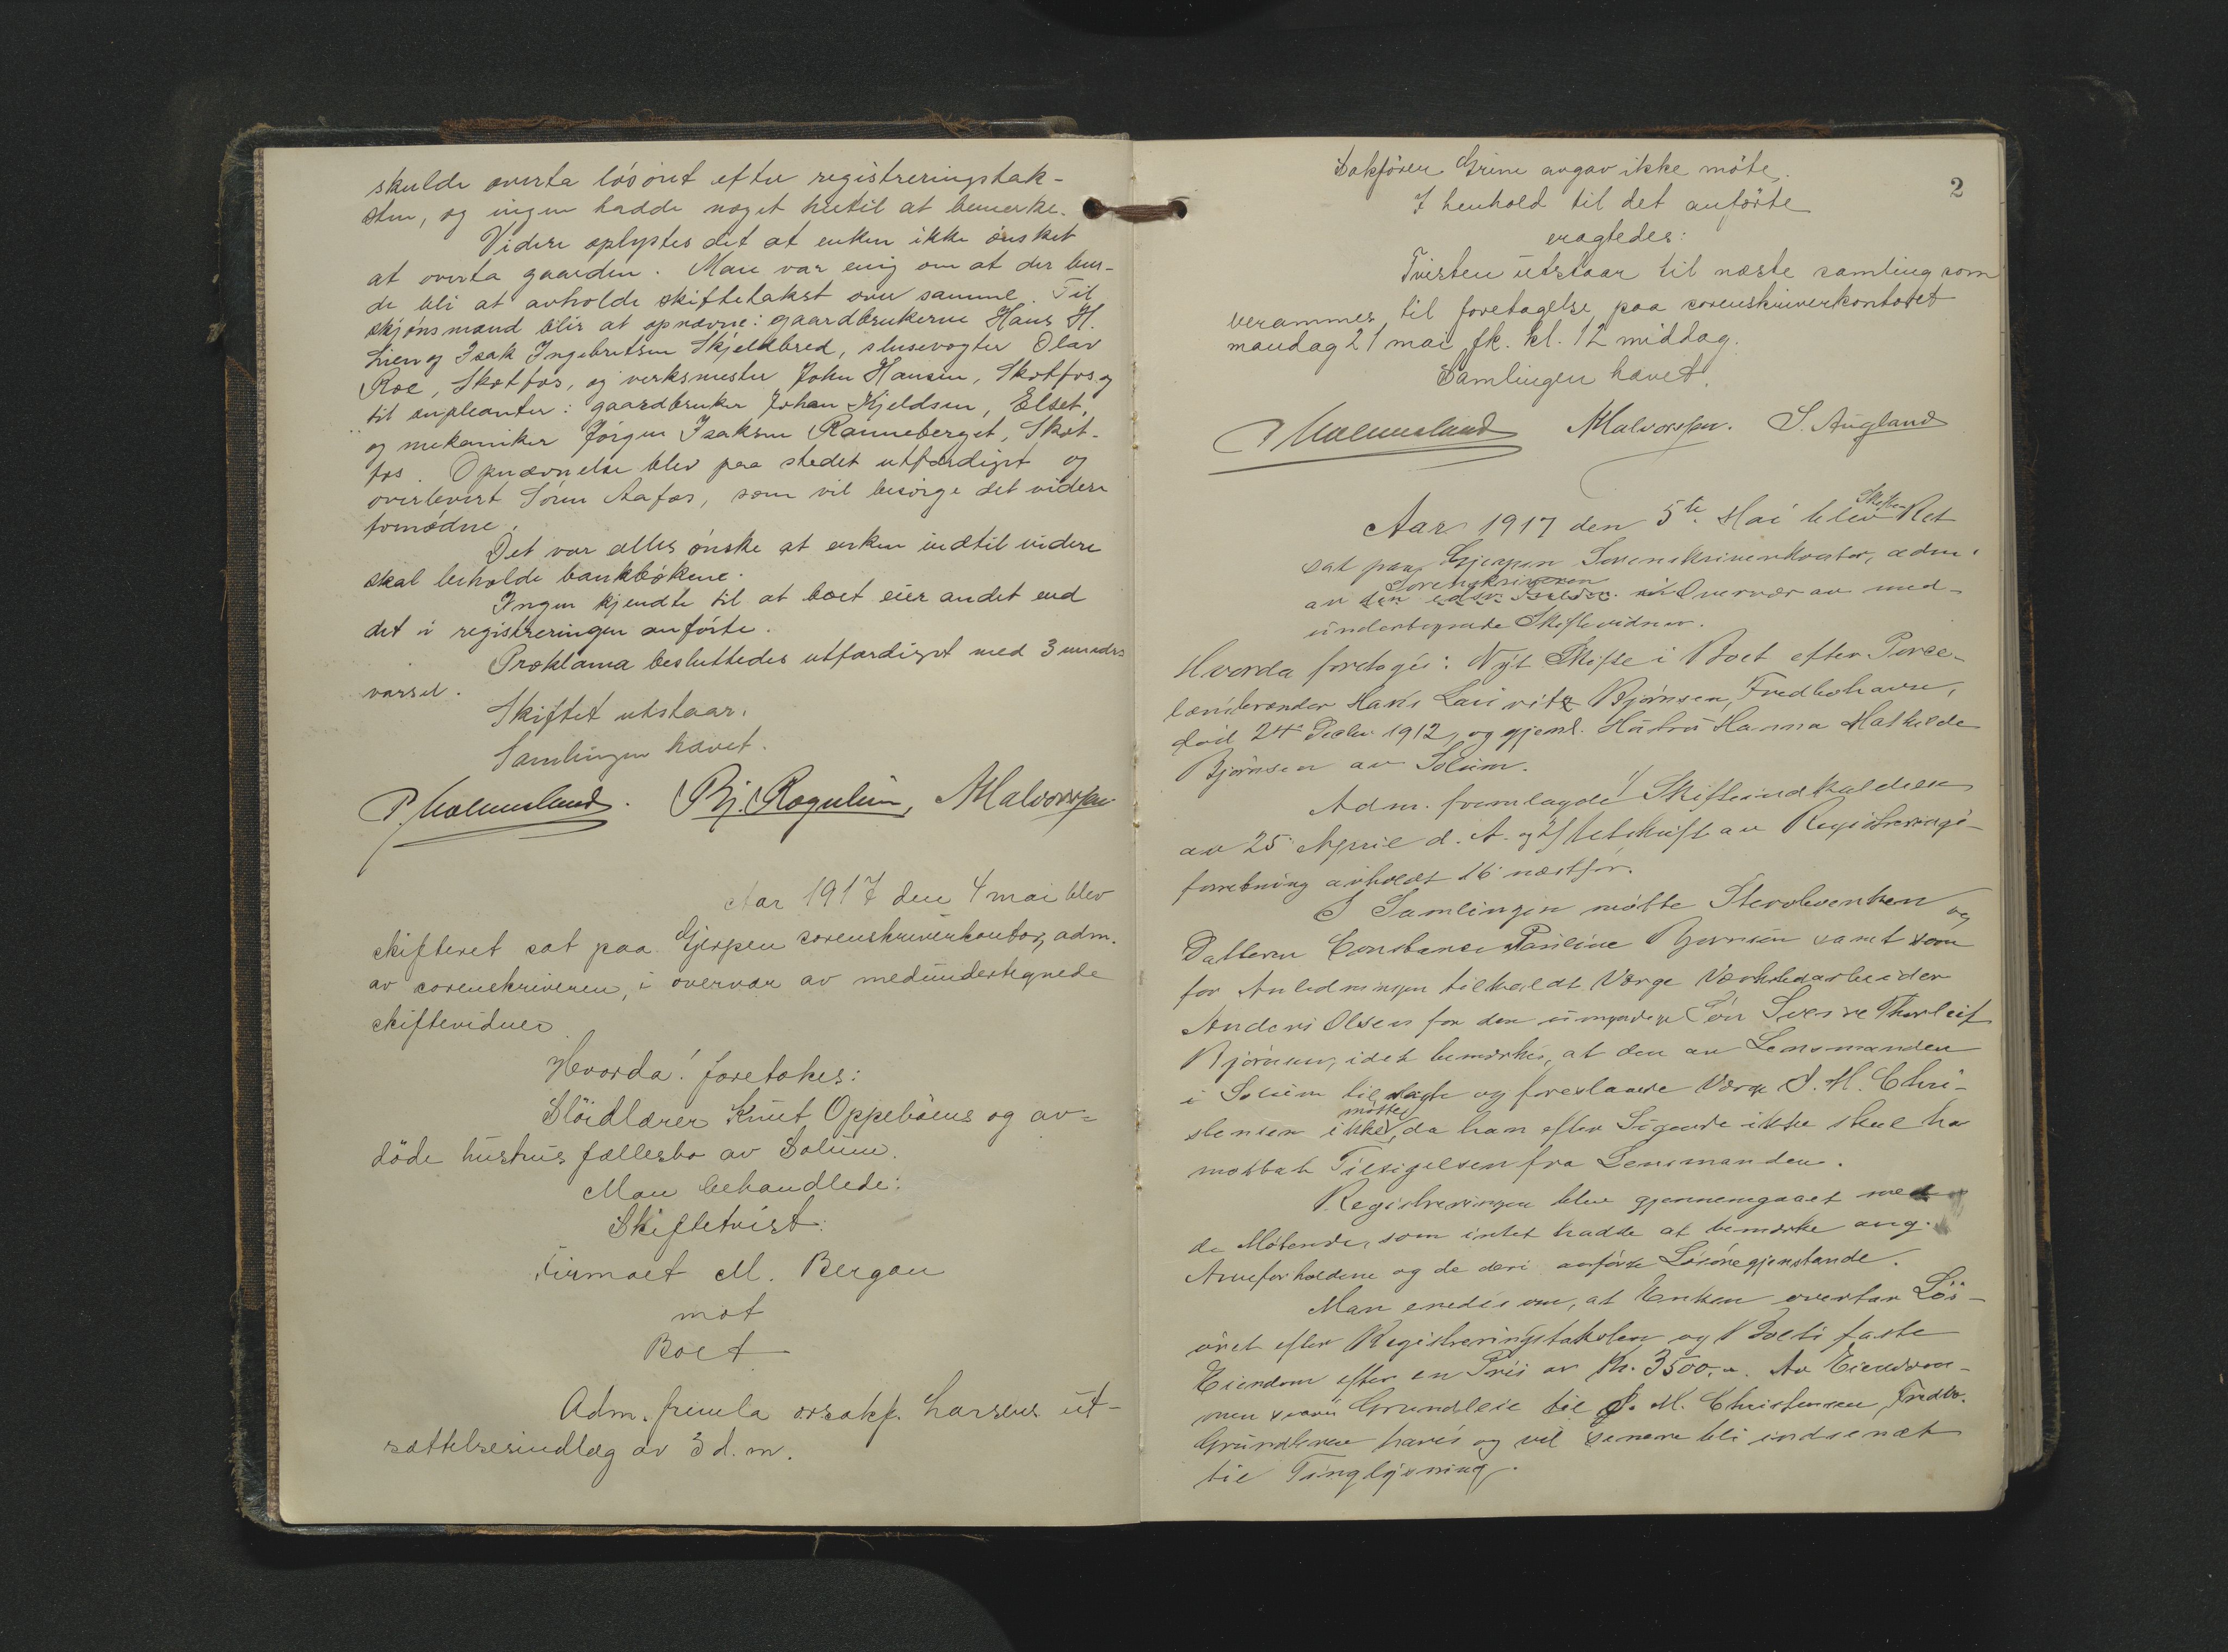 skulde overta løsøret efter registreringstak-
sten, og ingen hadde noget hertil at bemerke.
Videre oplystes det at enken ikke ønsket
at overta gaarden. Man var enig om at der bur-
de bli at avholde skiftetakst over samme. Til
skjønsmænd blir at opnævne: gaardbrukerne Hans H.
Lien og Isak Ingebretsen Skjeldbred, slusevogter Olav
Roe, Skotfos, og verksmester John Hansen, Skotfos og
til supleanter: gaardbruker Johan Kjeldsen, Elset,
og mekaniker Jørgen Isaksen Ranneberget, Skot-
fos. Opnævnelse blev paa stedet utfærdiget og
overlevert Søren Aafos, som vil besørge det videre
fornødne.
Det var alles ønske at enken indtil videre
skal beholde bankbøkene.
Ingen kjendte til at boet eier andet end
det i registreringen anførte.
Proklama besluttedes utfærdiget med 3 mndrs
varsel.
Skiftet utstaar.
Samlingen hævet.
Bj. Rogulin, MHalvorsen
Aar 1917 den 4 mai blev
skifteret sat paa Gjerpen sorenskriverkontor, adm.
av sorenskriveren, i overvær av medundertegnede
skiftevidner
Hvorda! foretokes:
Slöidlærer Knut Oppeböens og av-
döde hustrus fællesbo av Solum.
Man behandlede:
Skiftetvist:
Firmaet M. Bergan
mot
Boet
Adm. fremla orsakf. Larsens ut-
sættelsesindlæg av 3 d. m.
2
Sakfører Grini avgav ikke möte.
I henhold til det anförte
eragtedes:
Tvisten utstaar til næste samling som
berammes til foretagelse paa sorenskriverkontoret
mandag 21 mai fk. kl. 12 middag.
Samlingen hævet.
MHalvorsen. S. Augland
Aar 1917 den 5te Mai blev Skifte Ret
sat paa Gjerpen Sorenskriverkontor, adm.
av Sorenskriveren i Overvær av med-
undertegnede Skiftevidner.
Hvorda foretoges: Nyt Skifte i Boet efter Porce-
lænsbrænder Hans Lauritz Bjørnsen, Fredbohavn,
død 24de Decbr 1912, og gjenl. Hustru Hanna Mathilde
Bjørnsen av Solum.
Adm. fremlagde 1/ Skifteindkaldelse
av 25 April d. A. og 2/ Utskrift av Registrerings-
forretning avholdt 16 næstfør.
I Samlingen møtte Stervboenken og
Datteren Constance Pauline Bjørnsen samt som
for Anledningen tilkaldt Værge Værkstedarbeider
Anders Olsen for den umyndige Søn Sverre Thorleif
Bjørnsen, idet bemerkes, at den av Lensmanden
i Solum tilsagte og foreslaaede Værge S. M. Chri-
stensen ikke møtte, da han efter Sigende ikke skal ha
mottat Tilsigelsen fra Lensmanden.
Registreringen blev gjennemgaaet med
de Møtende, som intet hadde at bemerke ang.
Arveforholdene og de deri anførte Løsøregjenstande.
Man enedes om, at Enken overtar Løs-
øret efter Registreringstaksten og Boets faste
Eiendom efter en Pris av Kr. 3500.-. Av Eiendom-
men svares Grundleie til S. M. Christensen, Fredbo.
Grundbrev haves og vil senere bli indsendt
til Tinglysning.